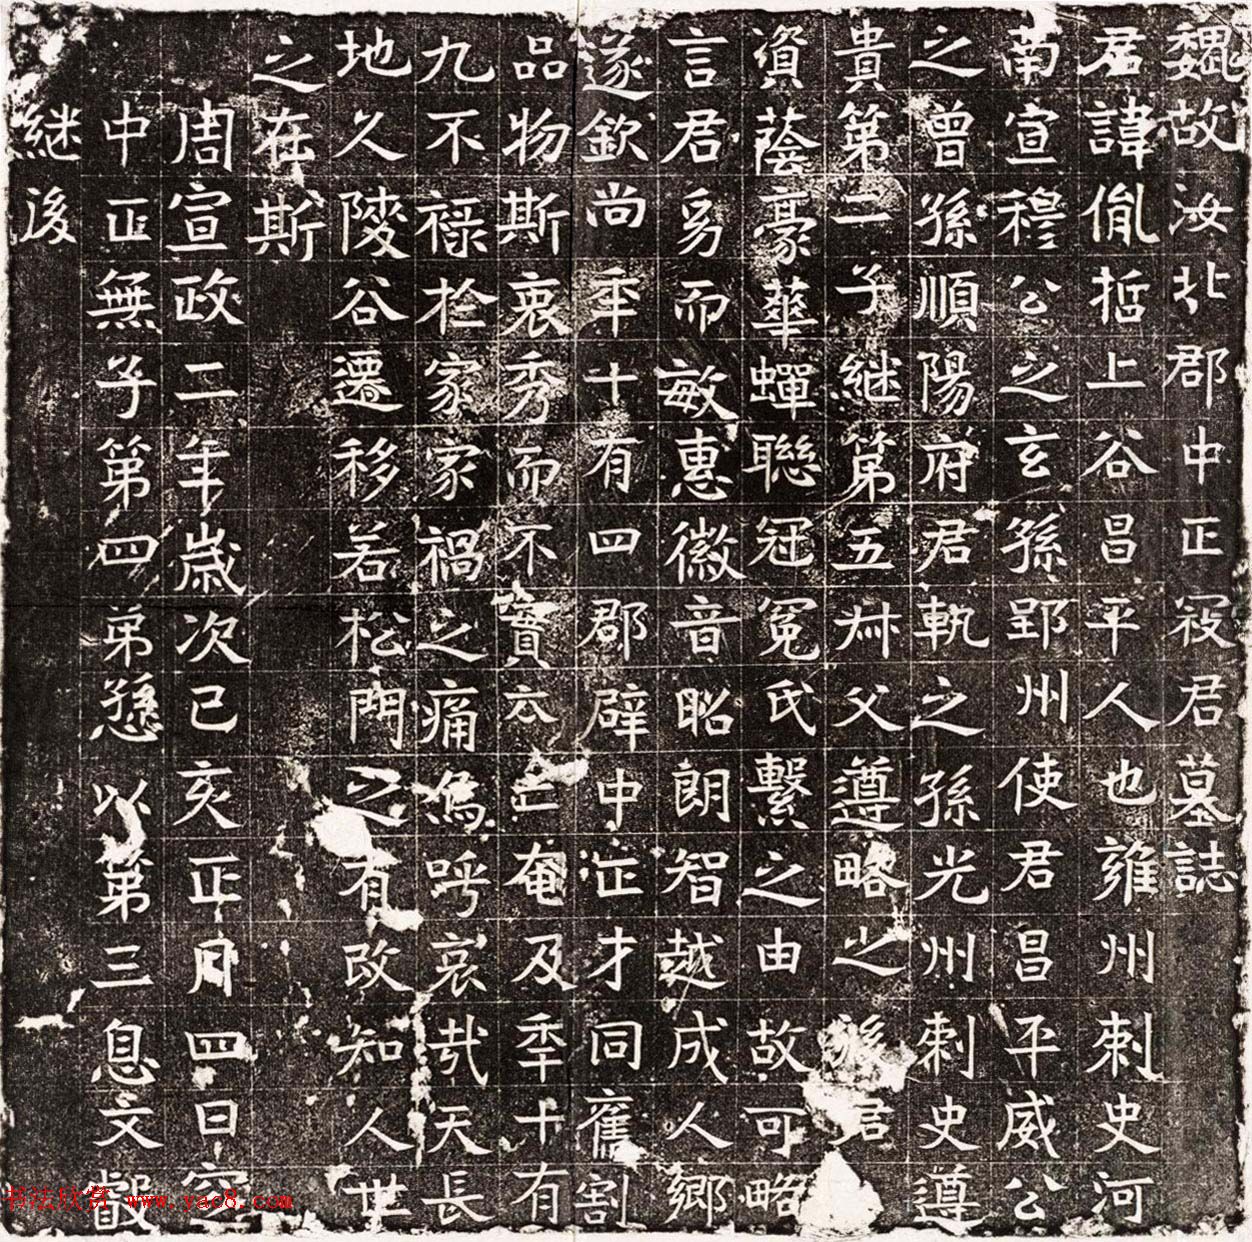 魏故汝北郡中正寇君墓誌
君諱胤哲上谷昌平人也雍州刺史河
南宣穆公之玄孫郢州使君昌平威公
之曾孫順陽府君軌之孫光州刺史遵
貴第二子継第五叔父遵略之後君
資蔭豪華蟬聯冠冕氏繫之由故可略
言君㓜而敏惠徽音昭朗智越成人鄉
遂欽尚年十有四郡辟中正才同舊割
品物斯裒秀而不實六亡奄及年十有
九不祿於家家禍之痛嗚呼哀哉天長
地久陵谷遷移若松門之有改知人世
之在斯
周宣政二年歲次己亥正月四日窆
中正無子第四弟愻以第三息文叡
継後
书法欣赏 www.yac8.com